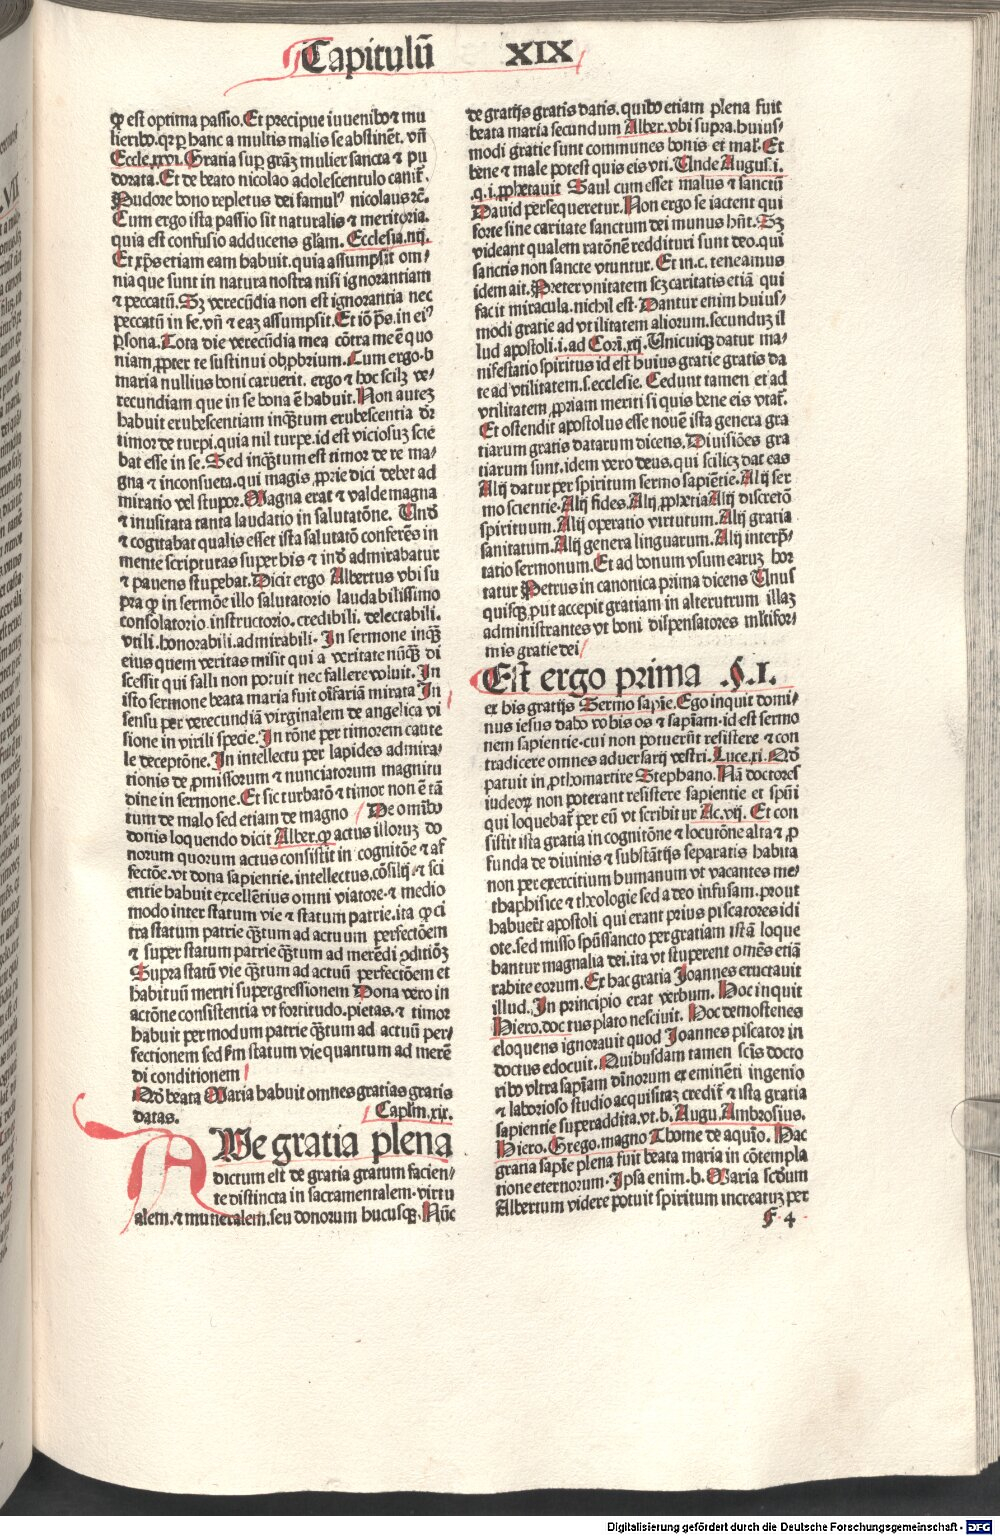 Capitulū XIX
ꝙ est optima passio. Et precipue iuuenibꝰ ⁊ mu
lieribꝰ. qꝛ ꝑ hanc a multis malis se abstinēt. vn̄
Eccle. xxvi. Gratia suꝑ grāꝫ mulier sancta ⁊ pu
dorata. Et de beato nicolao adolescentulo canit̄.
Pudore bono repletus dei famulꝰ nicolaus ⁊c̄.
Cum ergo ista passio sit naturalis ⁊ meritoria.
quia est confusio adducens gl̄am. Ecclesia. iiij.
Et xp̄s etiam eam habuit. quia assumpsit om-
nia que sunt in natura nostra nisi ignorantiam
⁊ peccatū. Sꝫ verecūdia non est ignorantia nec
peccatū in se. vn̄ ⁊ eaꝫ assumpsit. Et iō ps̄. in eiꝰ
ꝑsona. Tota die verecūdia mea cōtra me ē quo
niam ꝓpter te sustinui obꝓbrium. Cum ergo. b
maria nullius boni caruerit. ergo ⁊ hoc scilꝫ ve-
recundiam que in se bona ē habuit. Non auteꝫ
habuit erubescentiam inqꝫtum erubescentia dr̄
timor de turpi. quia nil turpe. id est viciosuꝫ scie
bat esse in se. Sed inqꝫtum est timor de re ma-
gna ⁊ inconsueta. qui magis ꝓprie dici debet ad
miratio vel stupor. Magna erat ⁊ valde magna
⁊ inusitata tanta laudatio in salutatōne. Vnd̄
⁊ cogitabat qualis esset ista salutatō conferēs in
mente scripturas super his ⁊ ind̄ admirabatur
⁊ pauens stupebat. Dicit ergo Albertus vbi su
pra ꝙ in sermōe illo salutatorio laudabilissimo
consolatorio. instructorio. credibili. delectabili.
vtili. honorabili. admirabili. In sermone inqꝫ
eius quem veritas misit qui a veritate nūqꝫ di
scessit qui falli non potuit nec fallere voluit. In
isto sermone beata maria fuit oīfariā mirata In
sensu per verecundiā virginalem de angelica vi
sione in virili specie. In rōne per timorem caute
le deceptōne. In intellectu per lapides admira-
tionis de ꝓmissorum ⁊ nunciatorum magnitu
dine in sermone. Et sic turbatō ⁊ timor non ē tā
tum de malo sed etiam de magno De omībꝰ
donis loquendo dicit Alber. ꝙ actus illoruꝫ do
norum quorum actus consistit in cognitōe ⁊ af
fectōe. vt dona sapientie. intellectus. cōsilij ⁊ sci
entie habuit excellētius omni viatore. ⁊ medio
modo inter statum vie ⁊ statum patrie. ita ꝙ ci
tra statum patrie qꝫtum ad actuum perfectōem
⁊ super statum patrie qꝫtum ad merēdi ꝯditiōꝫ
Supra statū vie qꝫtum ad actuū perfectōem et
habituū meriti supergressionem Dona vero in
actōne consistentia vt fortitudo. pietas. ⁊ timor
habuit per modum patrie qꝫtum ad actuū per-
fectionem sed s̄m statum vie quantum ad merē
di conditionem
Qd̄ beata Maria habuit omnes gratias gratis
datas. Capl̄m. xix.
AVe gratia plena
dictum est de gratia gratum facien-
te distincta in sacramentalem. virtu
alem. ⁊ muneralem. seu donorum hucusqꝫ. Nūc
de gratijs gratis datis. quibꝰ etiam plena fuit
beata maria secundum Alber. vbi supra. huius-
modi gratie sunt communes bonis et mal̄. Et
bene ⁊ male potest quis eis vti. Vnde Augus. i.
q. i. ꝓphetauit Saul cum esset malus ⁊ sanctū
Dauid persequeretur. Non ergo se iactent qui
forte sine caritate sanctum dei munus hn̄t. Sꝫ
videant qualem ratōnē reddituri sunt deo. qui
sanctis non sancte vtuntur. Et in. c. teneamus
idem ait. Preter vnitatem scꝫ caritatis etiā qui
facit miracula. nichil est. Dantur enim huius-
modi gratie ad vtilitatem aliorum. secunduꝫ il
lud apostoli. i. ad Corī. xij. Vnicuiqꝫ datur ma-
nifestatio spiritus id est huius gratie gratis da
te ad vtilitatem. s. ecclesie. Cedunt tamen et ad
vtilitatem ꝓpriam meriti si quis bene eis vtat̄.
Et ostendit apostolus esse nouē ista genera gra
tiarum gratis datarum dicens. Diuisiōes gra
tiarum sunt. idem vero deus. qui scilicꝫ dat eas
Alij datur per spiritum sermo sapiētie. Alij ser
mo scientie. Alij fides. Alij ꝓphetia Alij discretō
spirituum. Alij operatio virtutum. Alij gratia
sanitatum. Alij genera linguarum. Alij interp̄-
tatio sermonum. Et ad bonum vsum earuꝫ hor
tatur Petrus in canonica prima dicens Vnus
quisqꝫ put accepit gratiam in alterutrum illaꝫ
administrantes vt boni dispensatores multifor-
mis gratie dei
Est ergo prima .§.I.
ex his gratijs Sermo sapīe. Ego inquit domi-
nus iesus dabo vobis os ⁊ sapīam. id est sermo
nem sapientie. cui non poterūt resistere ⁊ con
tradicere omnes aduersarij vestri. Luce. xi. Qd̄
patuit in ꝓthomartire Stephano. Nā doctores
iudeoꝝ non poterant resistere sapientie et spūi
qui loquebat̄ per eū vt scribitur Ac. vij. Et con
sistit ista gratia in cognitōne ⁊ locutōne alta ⁊ ꝓ
funda de diuinis ⁊ substātijs separatis habita
non per exercitium humanum vt vacantes me-
thaphisice ⁊ theologie sed a deo infusam. prout
habuer̄t apostoli qui erant prius piscatores idi
ote. sed misso spūssancto per gratiam istā loque
bantur magnalia dei. ita vt stuperent omēs etiā
rabite eorum. Ex hac gratia Joannes eructauit
illud. In principio erat verbum. Hoc inquit
Hiero. doctus plato nesciuit. Hoc demostenes
eloquens ignorauit quod Joannes piscator in
doctus edocuit. Quibusdam tamen scīs docto
ribꝰ vltra sapīam dīnorum ex eminēti ingenio
⁊ laborioso studio acquisitaꝫ credit̄ ⁊ ista gratia
sapientie superaddita. vt. b. Augu. Ambrosius.
Hiero. Grego. magno Thome de aquīo. Hac
gratia sapīe plena fuit beata maria in cōtempla
tione eternorum. Ipsa enim. b. Maria scdūm
Albertum videre potuit spiritum increatuꝫ per
F 4
Digitalisierung gefördert durch die Deutsche Forschungsgemeinschaft - DFG